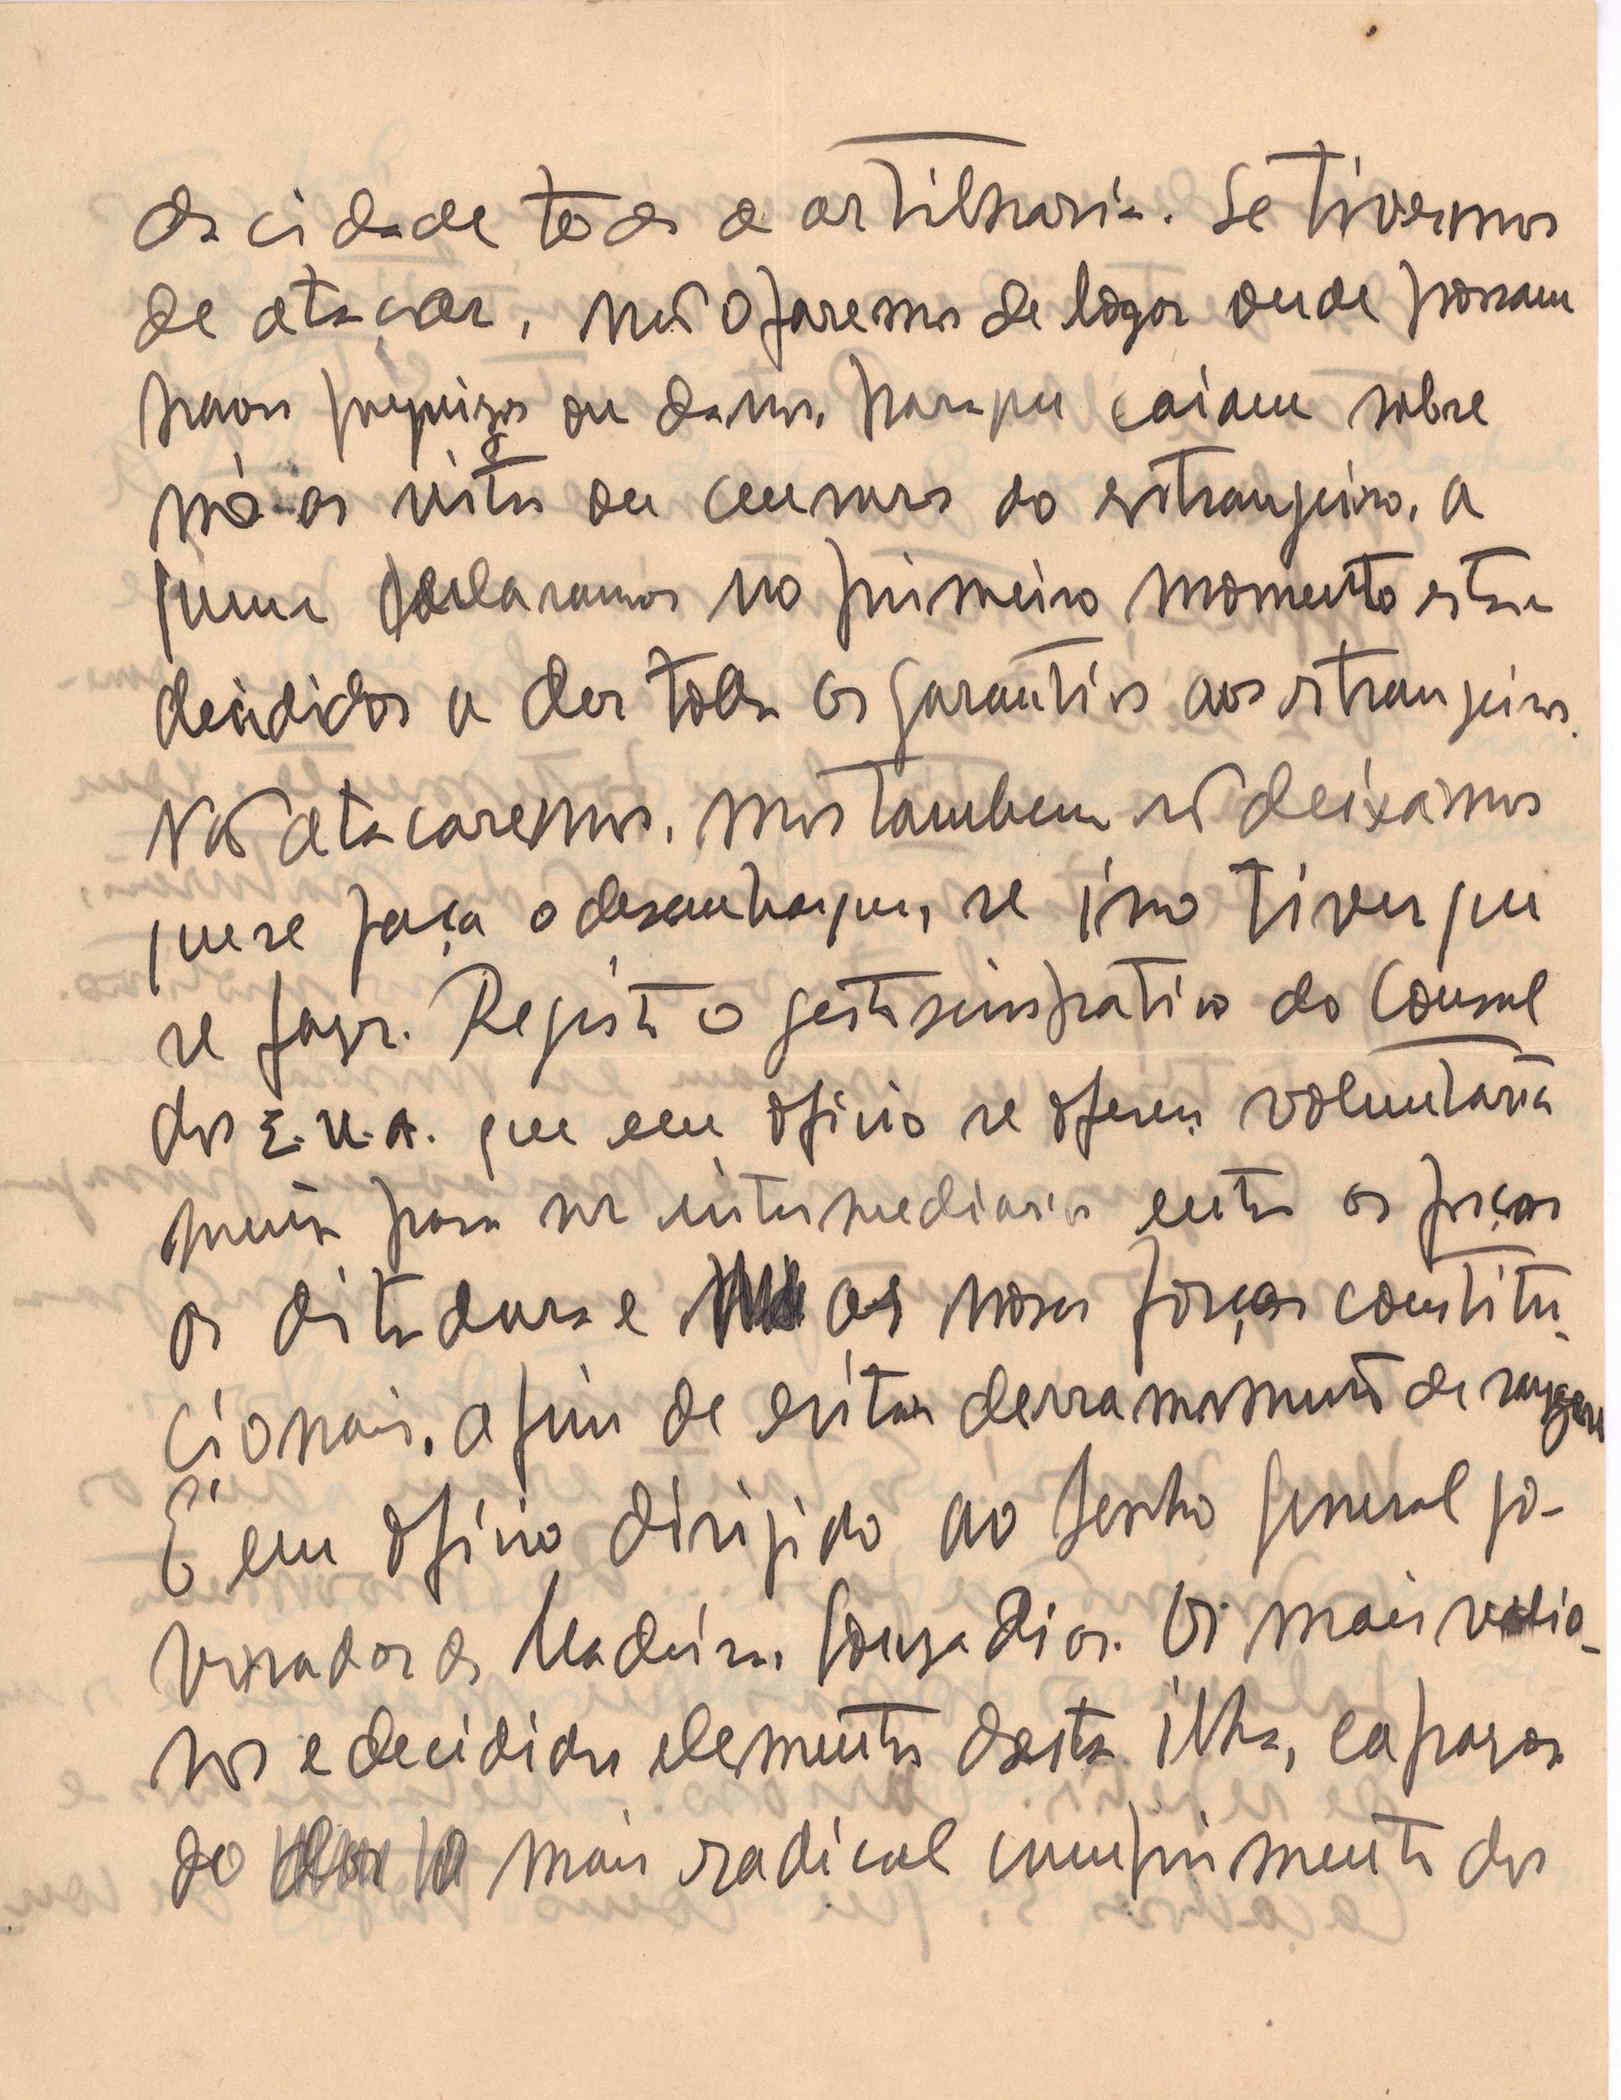 da cidade toda a artilharia. Se tivermos
de atacar, não o faremos de logar onde possam
haver prejuizos ou danos, para que caiam sobre
nós as iras ou censuras do estrangeiro, a
quem declaramos no primeiro momento estar
decididos a dar todas as garantias aos estrangeiros.
Não atacaremos, mas tambem não deixamos
que se faça o desembarque, se isso tiver que
se fazer. Registo o gesto simpatico do Consul
dos E.U.A. que em oficio se oferece voluntaria
mente para ser intermediario entre as forças
da ditadura e as nossas forças constitu-
cionais, afim de evitar derramamento de sangue
É em oficio dirigido ao Senhor General go-
vernador da Madeira, Souza Dias. Os mais valio-
sos e decididos elementos desta ilha, capazes
do mais radical cumprimento dos